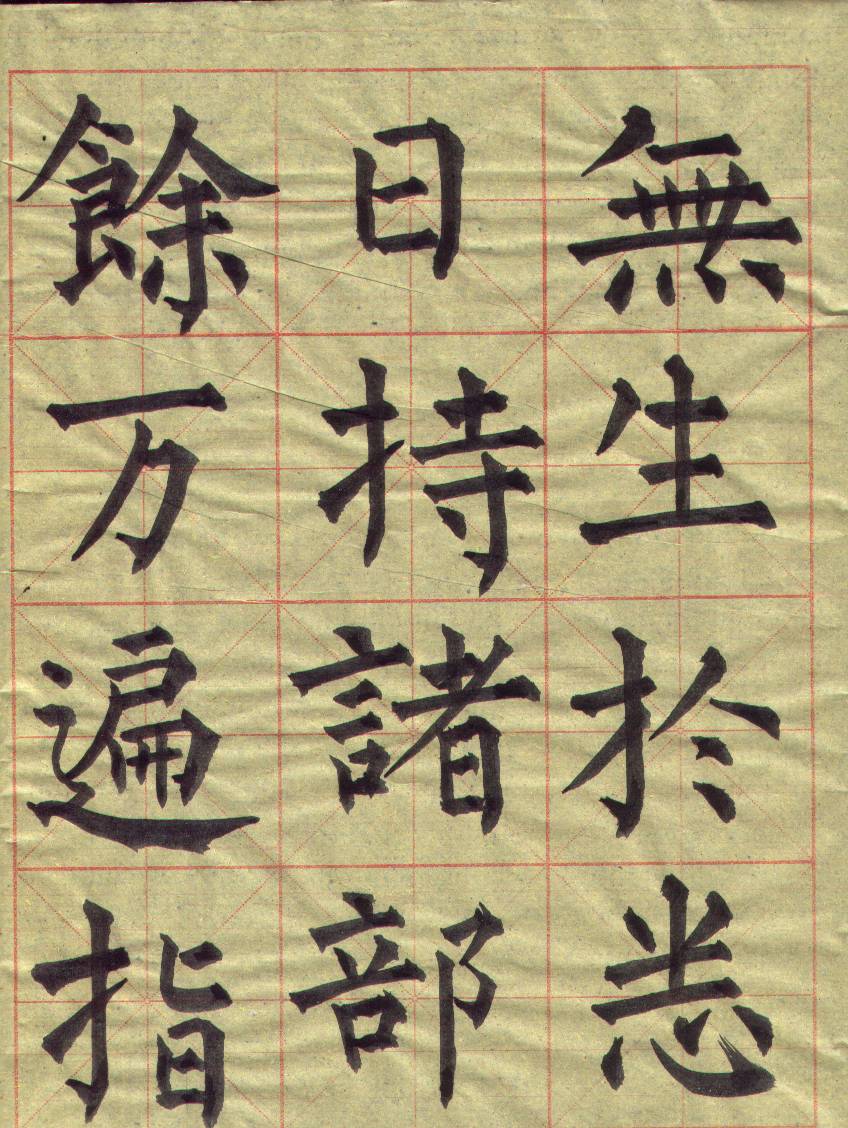 無生於悉
日持諸部
餘万遍指